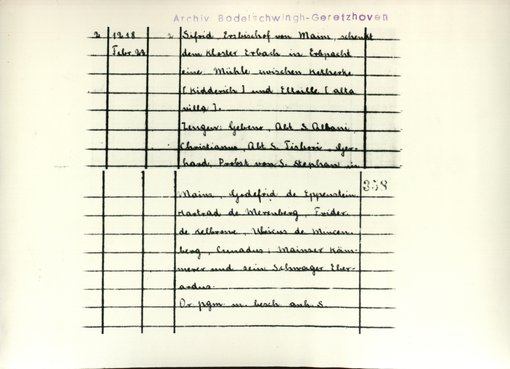 Archiv Bodelschwingh-Geretzhoven
2 1218 2 Sifrid, Erzbischof von Mainz, schenkt
Febr. 22 dem Kloster Erbach in Erbpacht
eine Mühle zwischen Ketherke
[Kidderich] und Eltaille [alta
villa].
Zeugen: Gebeno, Abt S. Albani
Christianus, Abt S. Ger-
hard, Probst von S. Stephan in
Mainz, Godefrid de Eppenstein 358
de Merenberg, Frider.
de Kelbrowe, de Mucen-
berg, Mainzer Käm-
merer und sein Schwager Eber-
ardus.
Or. pgm. m. besch. anh. S.